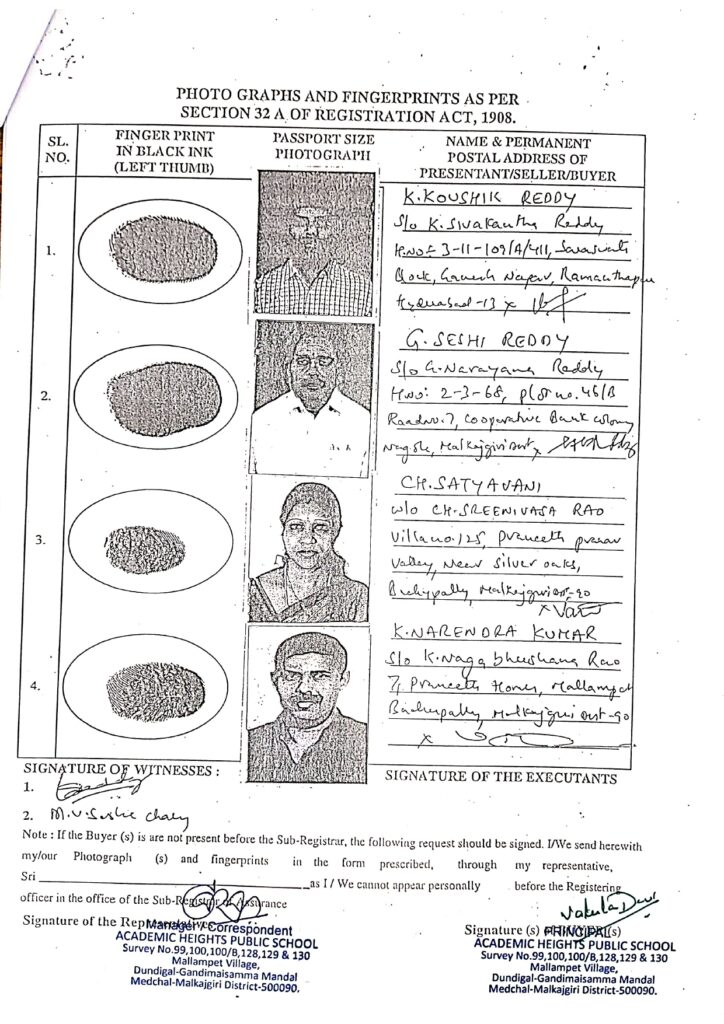 PHOTO GRAPHS AND FINGERPRINTS AS PER
SECTION 32 A OF REGISTRATION ACT, 1908.
SL. NO.
FINGER PRINT
IN BLACK INK
(LEFT THUMB)
PASSPORT SIZE
PHOTOGRAPH
NAME & PERMANENT
POSTAL ADDRESS OF
PRESENTANT/SELLER/BUYER
1.
K.KOUSHIK REDDY
S/o K.Sivakantha Reddy
H.No: 3-11-109/A/411, Saraswati
Block, Ganesh Nagar, Ramanthapur
Hyderabad-13 x
2.
G. SESHI REDDY
S/o G.Narayana Reddy
H.No: 2-3-68, plot no. 46/B
Road no. 7, Cooperative Bank Colony
Nagole, Malkajgiri Dist x
3.
CH.SATYAVANI
W/o CH.SREENIVASA RAO
Villa no. 125, Praneeth pranav
Valley, Near Silver oaks,
Bachypally, Malkajgiri Dist-90
x
4.
K.NARENDRA KUMAR
S/o K.Nagabhushana Rao
7, Praneeth Homes, Mallampet
Bachupally, Malkajgiri Dist-90
x
SIGNATURE OF WITNESSES :
SIGNATURE OF THE EXECUTANTS
1.
2. M.V.
Note : If the Buyer (s) is are not present before the Sub-Registrar, the following request should be signed. I/We send herewith
my/our Photograph (s) and fingerprints in the form prescribed, through my representative,
Sri as I / We cannot appear personally before the Registering
officer in the office of the Sub-Registrar of Assurance
Signature of the Representative
Signature (s) of (s)
Manager / Correspondent
ACADEMIC HEIGHTS PUBLIC SCHOOL
Survey No.99,100,100/B,128,129 & 130
Mallampet Village,
Dundigal-Gandimaisamma Mandal
Medchal-Malkajgiri District-500090.
PRINCIPAL
ACADEMIC HEIGHTS PUBLIC SCHOOL
Survey No.99,100,100/B,128,129 & 130
Mallampet Village,
Dundigal-Gandimaisamma Mandal
Medchal-Malkajgiri District-500090.